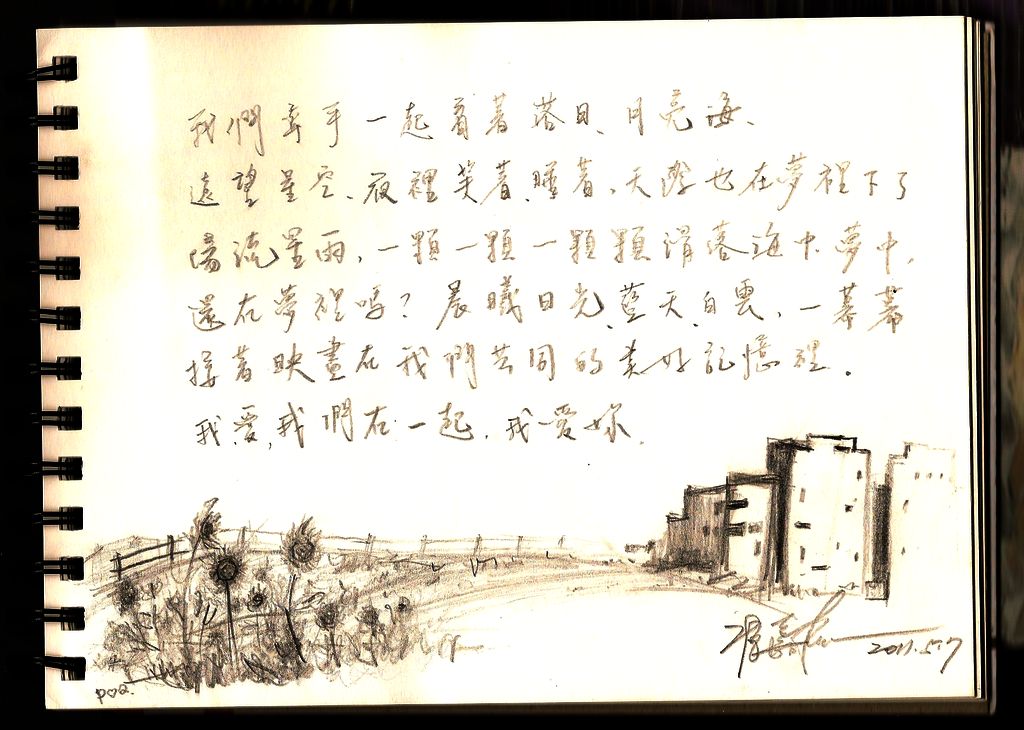 我們牽手一起看著落日、月亮海、
遠望星空、夜裡笑著、睡著、天際也在夢裡下了
場流星雨,一顆一顆一顆顆滑落海中、夢中,
還在夢裡嗎?晨曦日光、藍天、白雲,一幕幕
接著映畫在我們共同的美好記憶裡.
我愛,我們在一起.我愛妳.
2011.5.7